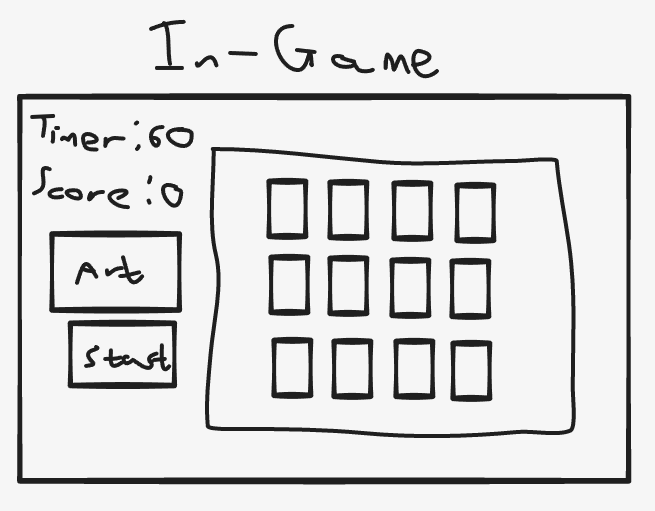 In-Game
Timer:60
Score:0
Art
Start